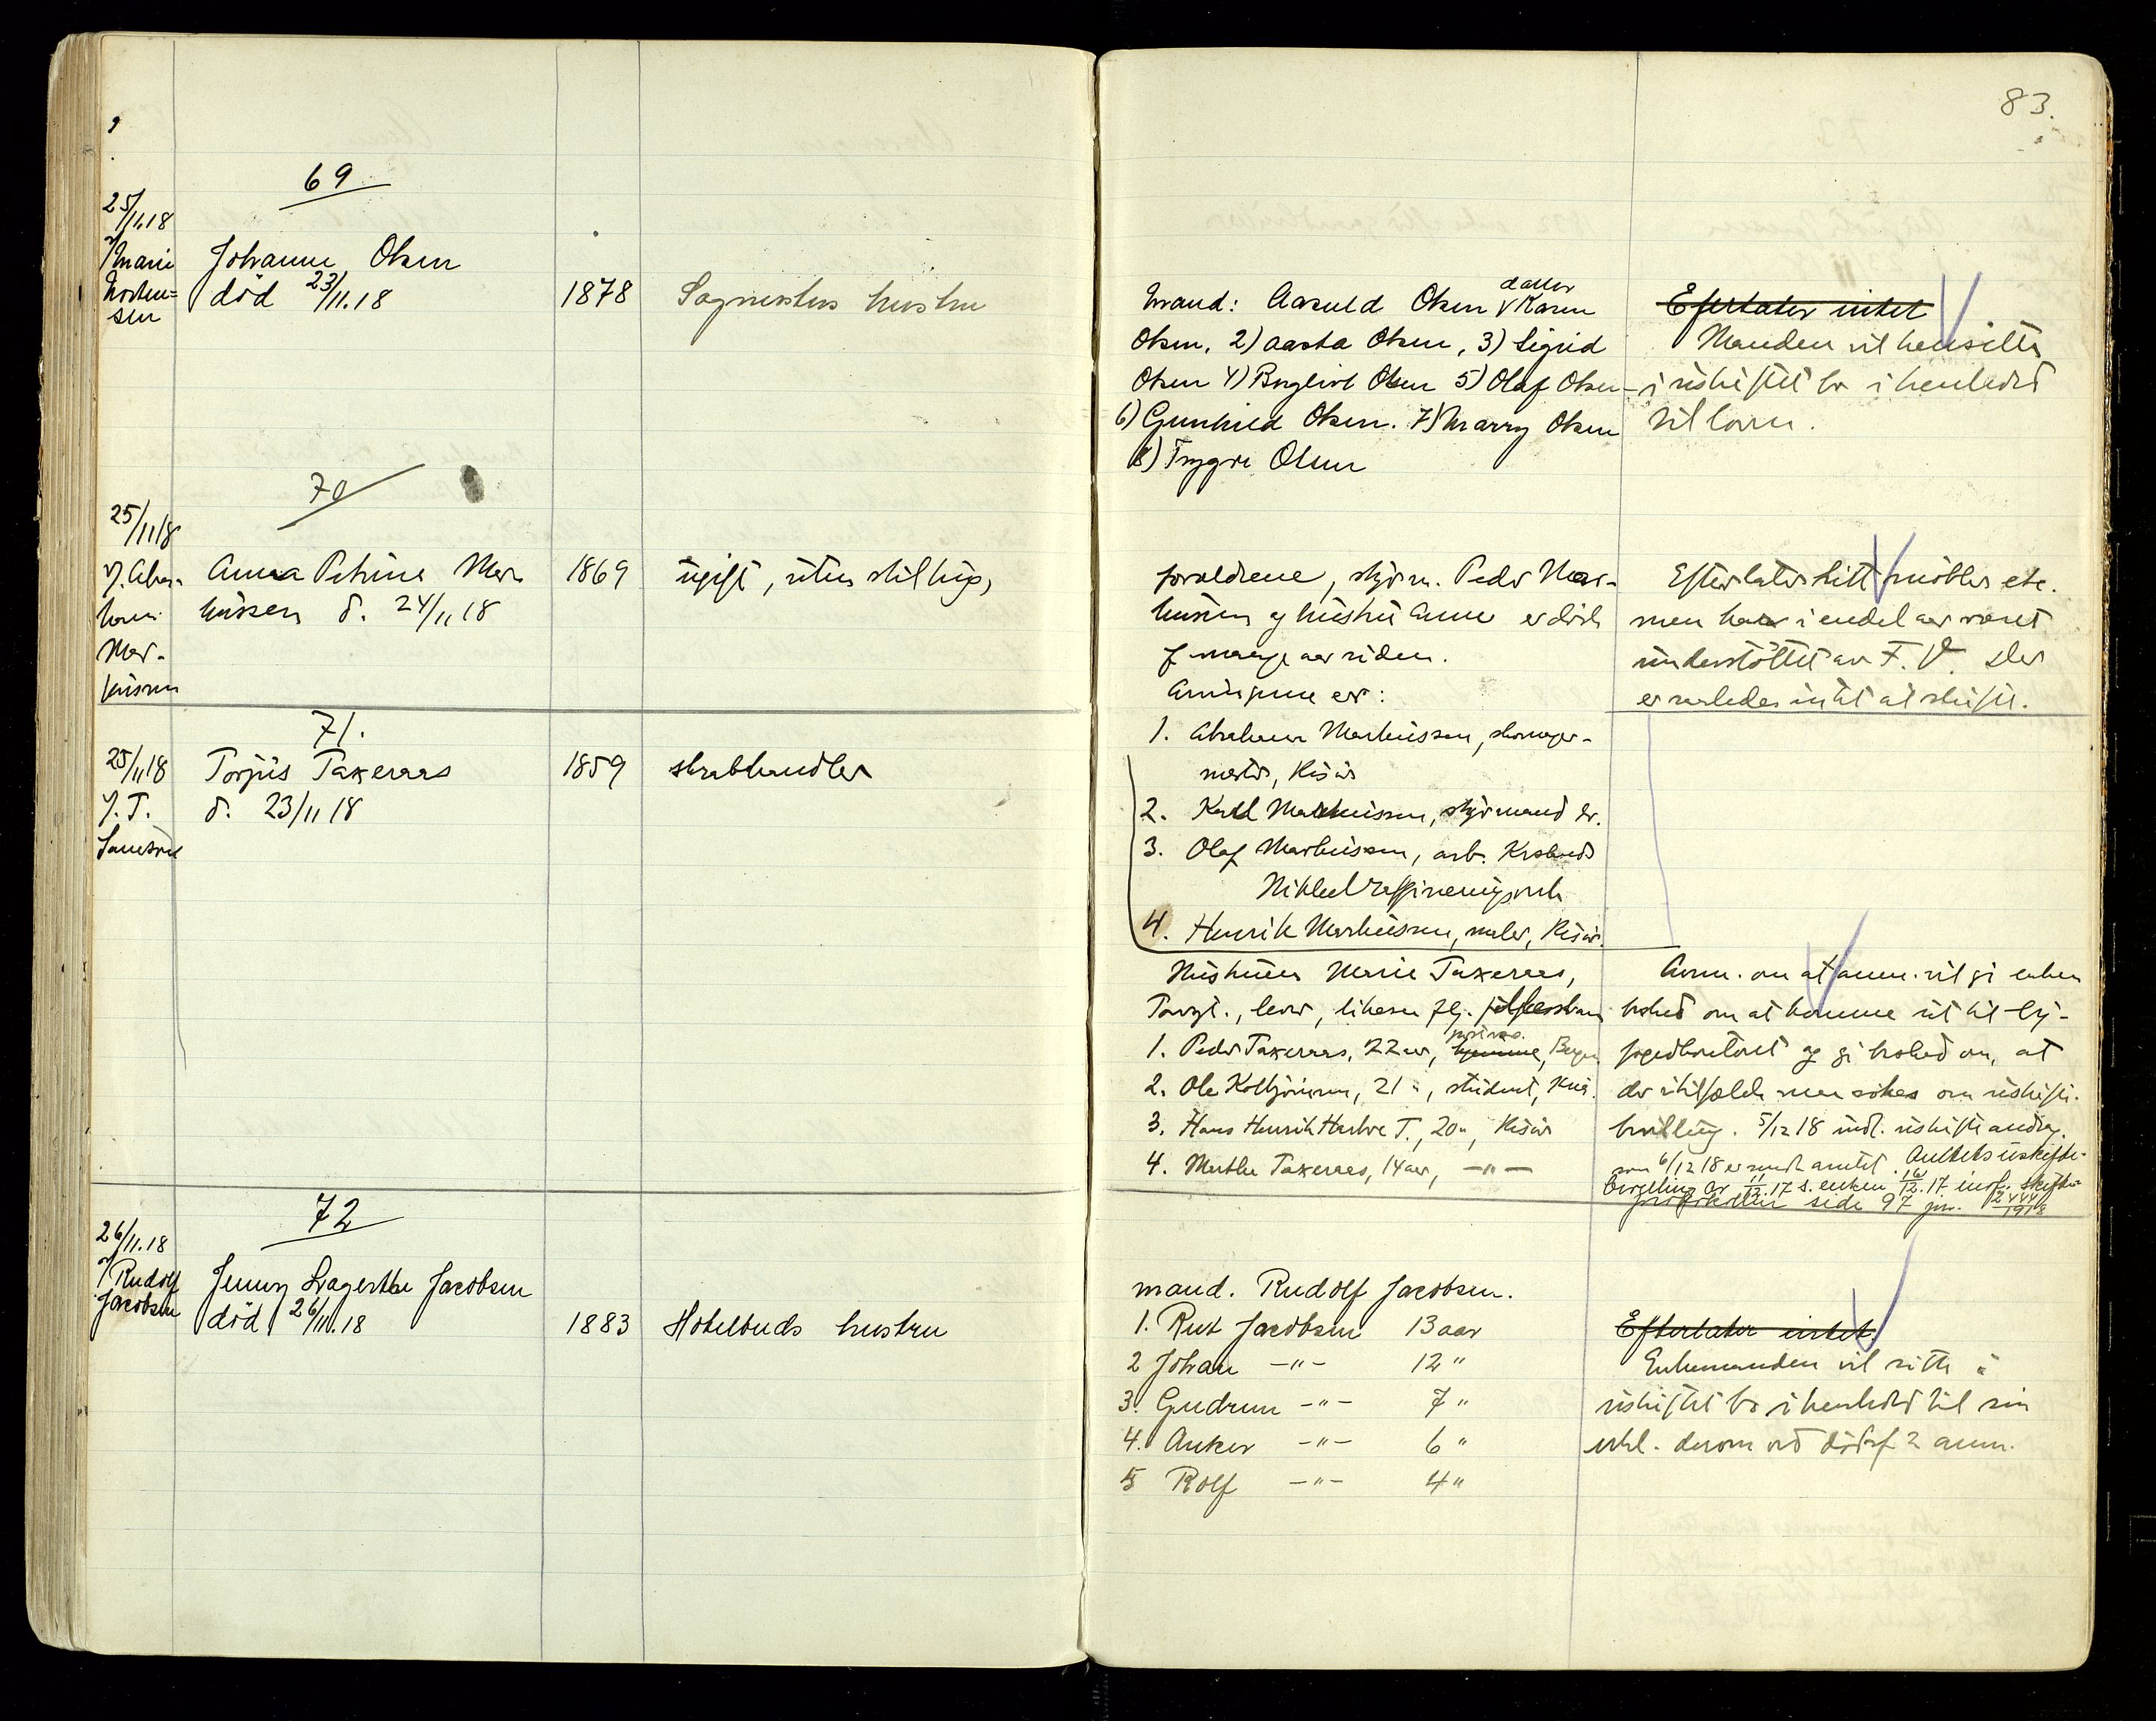 83.
69
25/11.18
v/ Marie
Morten=
sen
Johanne Olsen
död 23/11.18
1878
hustru
Mand: Aanuld Olsen datter
1) Karen
Olsen, 2) Aasta Olsen, 3) Sigrid
Olsen 4) Borgliot Olsen 5) Olaf Olsen
6) Gunhild Olsen. 7) Marry Olsen
8) Trygve Olsen
Efterlater intet
Manden vil hensitte
i uskiftet bo i henhold
til loven.
70
25/11 18
v/. Abra-
ham
Mar-
kussen
Anna Petrine Mar-
kussen d. 24/11 18
1869
ugift, uten stilling,
forældrene, styrm. Peder Mar-
kussen og hustru Anne er död
f. mange aar siden.
Arvingene er:
1. Abraham Markussen, skomager-
mester, Risör
2. Karl Markussen, styrmand hr.
3. Olaf Markussen, arb. Krsands
Nikkelraffineringsverk
4. Henrik Markussen, maler, Risör.
Efterlater litt möbler etc.
men har i endel aar været
understöttet av F. V. Der
er saaledes intet at skifte.
71.
25/11 18
v/. T.
Torjus Taxeraas
d. 23/11 18
1859
skrabhandler
Hustruen Marie Taxeraas,
lever, likesaa flg.
1. Peder Taxeraas, 22 aar, hjemme, Bergen
2. Ole Kolbjörnsen, 21 ", student, Kria.
3. Hans Henrik T., 20 ", Risör
4. Marthe Taxeraas, 14 aar, -"-
Anm. om at anm. vil gi enken
besked om at komme ut til by-
fogedkontoret og gi besked om, at
der i tilfælde maa sökes om uskifte-
bevilling. 5/12 18 indl. uskifteandrag.
som 6/12 18 er sendt amtet. Amtets uskifte-
bevilling av 11/12.17 s. enken 16/12.17 indf. skifte-
protokollen side 97 jnr. 2444/1918
72
26/11.18
v/ Rudolf
Jacobsen
Jenny Lagertha Jacobsen
död 26/11.18
1883
Hotelbuds hustru
mand. Rudolf Jacobsen.
1. Rut Jacobsen 13 aar
2 Johan -"- 12 "
3. Gudrun -"- 7 "
4. Anker -"- 6 "
5 Rolf -"- 4 "
Efterlater intet.
Enkemanden vil sitte i
uskiftet bo i henhold til sin
erkl. derom ved dödsf. anm.